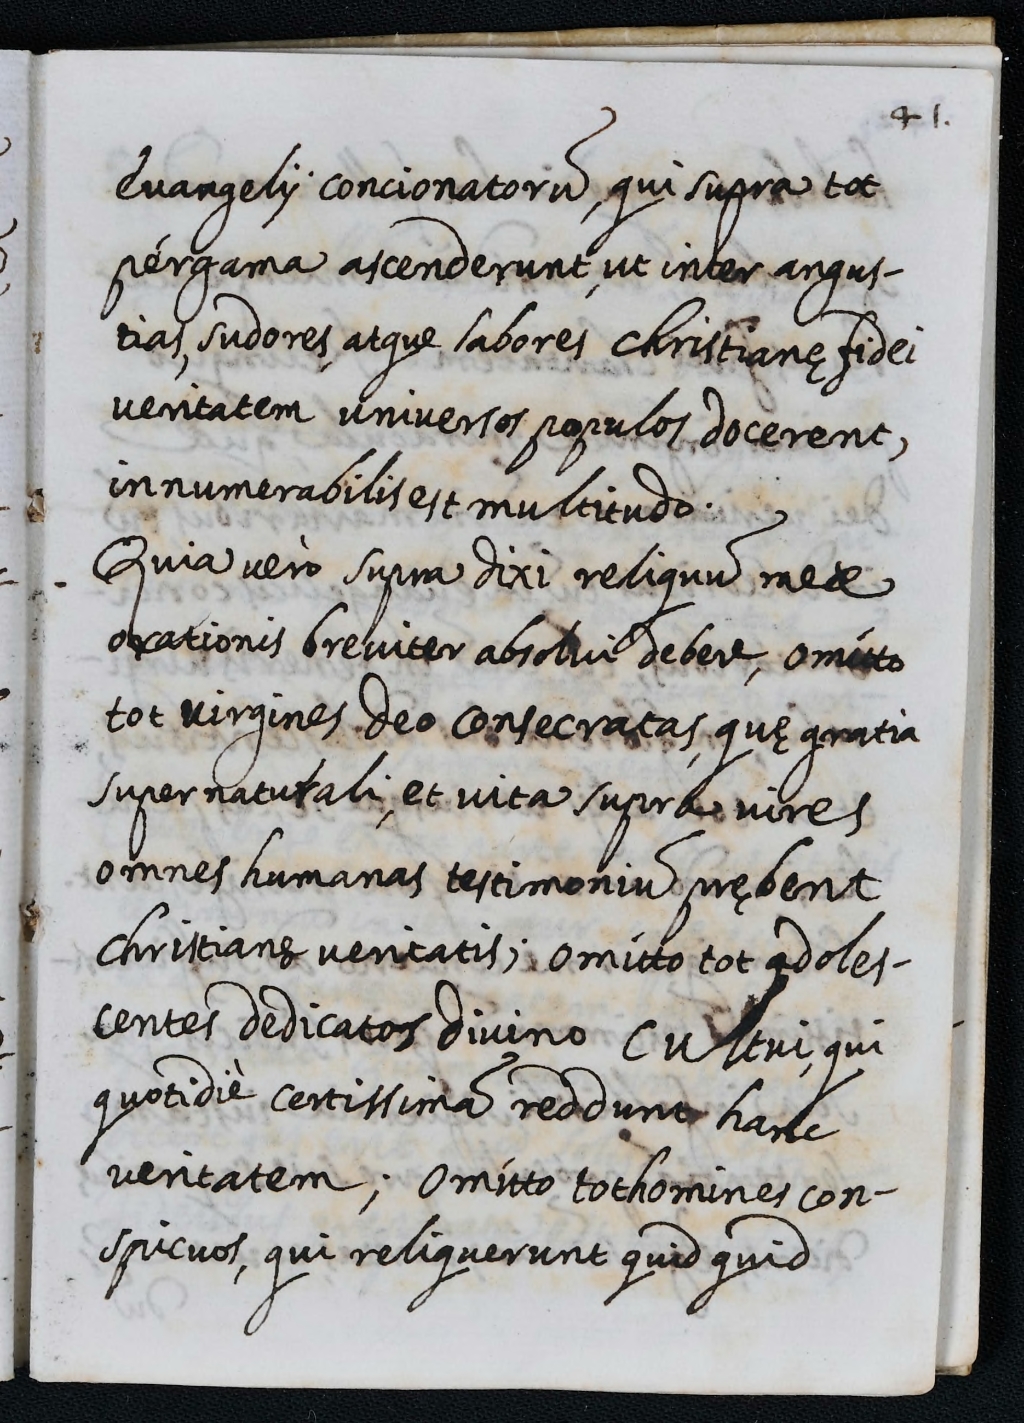 41.
Euangelij concionatorũ, qui supra tot
pérgama ascenderunt, ut inter angus-
tias, sudores, atque labores Christianę fidei
veritatem universos populos docerent,
innumerabilis est multitudo.
Quia verò supra dixi reliquũ meæ
orationis breviter absolvi debere, omitto
tot virgines Deo consecratas, quę gratia
supernaturali, et vita supra vires
omnes humanas testimoniũ prębent
Christianę veritatis; omitto tot adoles-
centes dedicatos divino Cultui, qui
quotidiè certissimã reddunt hanc
veritatem; omitto tot homines con-
spicuos, qui reliquerunt quid quid